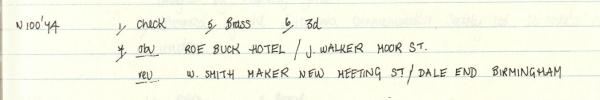 N100'74 1, check 5, Brass 6, 3d
7, obv ROE BUCK HOTEL / J. WALKER MOOR ST.
rev W. SMITH MAKER NEW MEETING ST / DALE END BIRMINGHAM